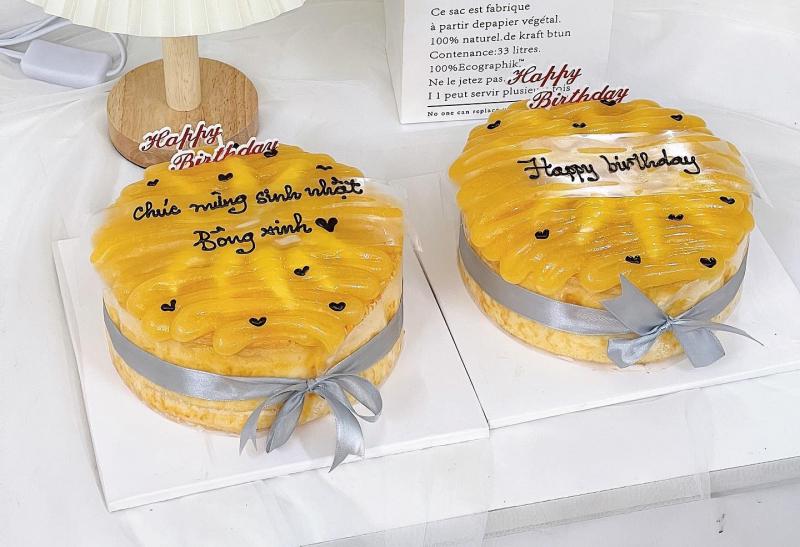 Ce sac est fabrique
à partir depapier végétal.
100% naturel.de kraft btun
Contenance:33 litres.
100%Ecographik.™
Ne le jetez pas
I 1 peut servir plusieu fois
No one can replace
Happy
Birthday
chúc mừng sinh nhật
Bông xinh
Happy
Birthday
Happy birthday